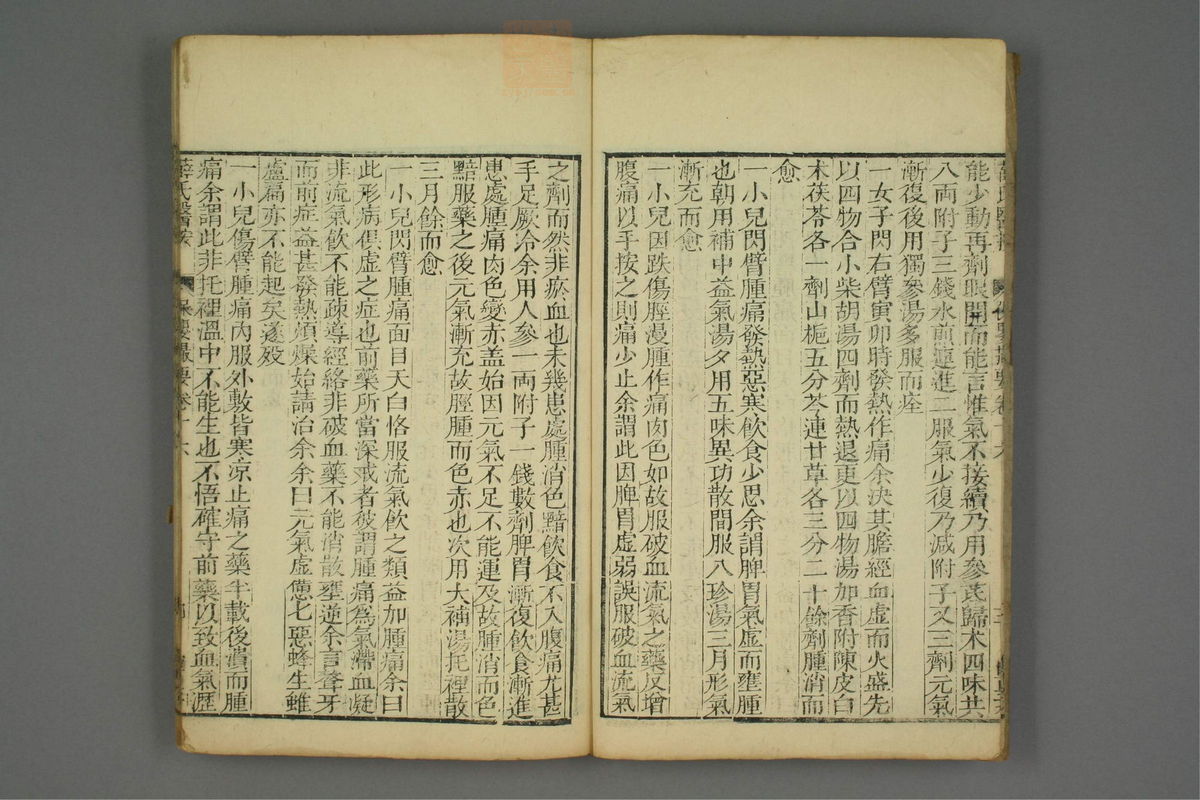 能少動再劑眼開而能言惟氣不接續乃用參芪歸术四味共
八兩附子三錢水煎連進二服氣少復乃減附子又三劑元氣
漸復後用獨參湯多服而痊
一女子閃右臂寅卯時發熱作痛余決其膽經血虛而火盛先
以四物合小柴胡湯四劑而熱退更以四物湯加香附陳皮白
术茯苓各一劑山梔五分芩連甘草各三分二十餘劑腫消而
愈
一小兒閃臂腫痛發熱惡寒飲食少思余謂脾胃氣虛而壅腫
也朝用補中益氣湯夕用五味異功散間服八珍湯三月形氣
漸充而愈
一小兒因跌傷脛漫腫作痛肉色如故服破血流氣之藥反增
腹痛以手按之則痛少止余謂此因脾胃虛弱誤服破血流氣
之劑而然非瘀血也未幾患處腫消色黯飲食不入腹痛尤甚
手足厥冷余用人參一兩附子一錢數劑脾胃漸復飲食漸進
患處腫痛肉色變赤盖始因元氣不足不能運及故腫消而色
黯服藥之後元氣漸充故脛腫而色赤也次用大補湯托裡散
三月餘而愈
一小兒閃臂腫痛面目夭白恪服流氣飲之類益加腫痛余曰
此形病俱虛之症也前藥所當深戒者彼謂腫痛爲氣滯血凝
非流氣飲不能疎導經絡非破血藥不能消散壅逆余言聱牙
而前症益甚發熱煩燥始請治余余曰元氣虛憊七惡蜂生雖
盧扁亦不能起矣遂歿
一小兒傷臂腫痛內服外敷皆寒凉止痛之藥半載後潰而腫
痛余謂此非托裡溫中不能生也不悟確守前藥以致血氣瀝
薛氏醫按 保嬰撮要卷十六